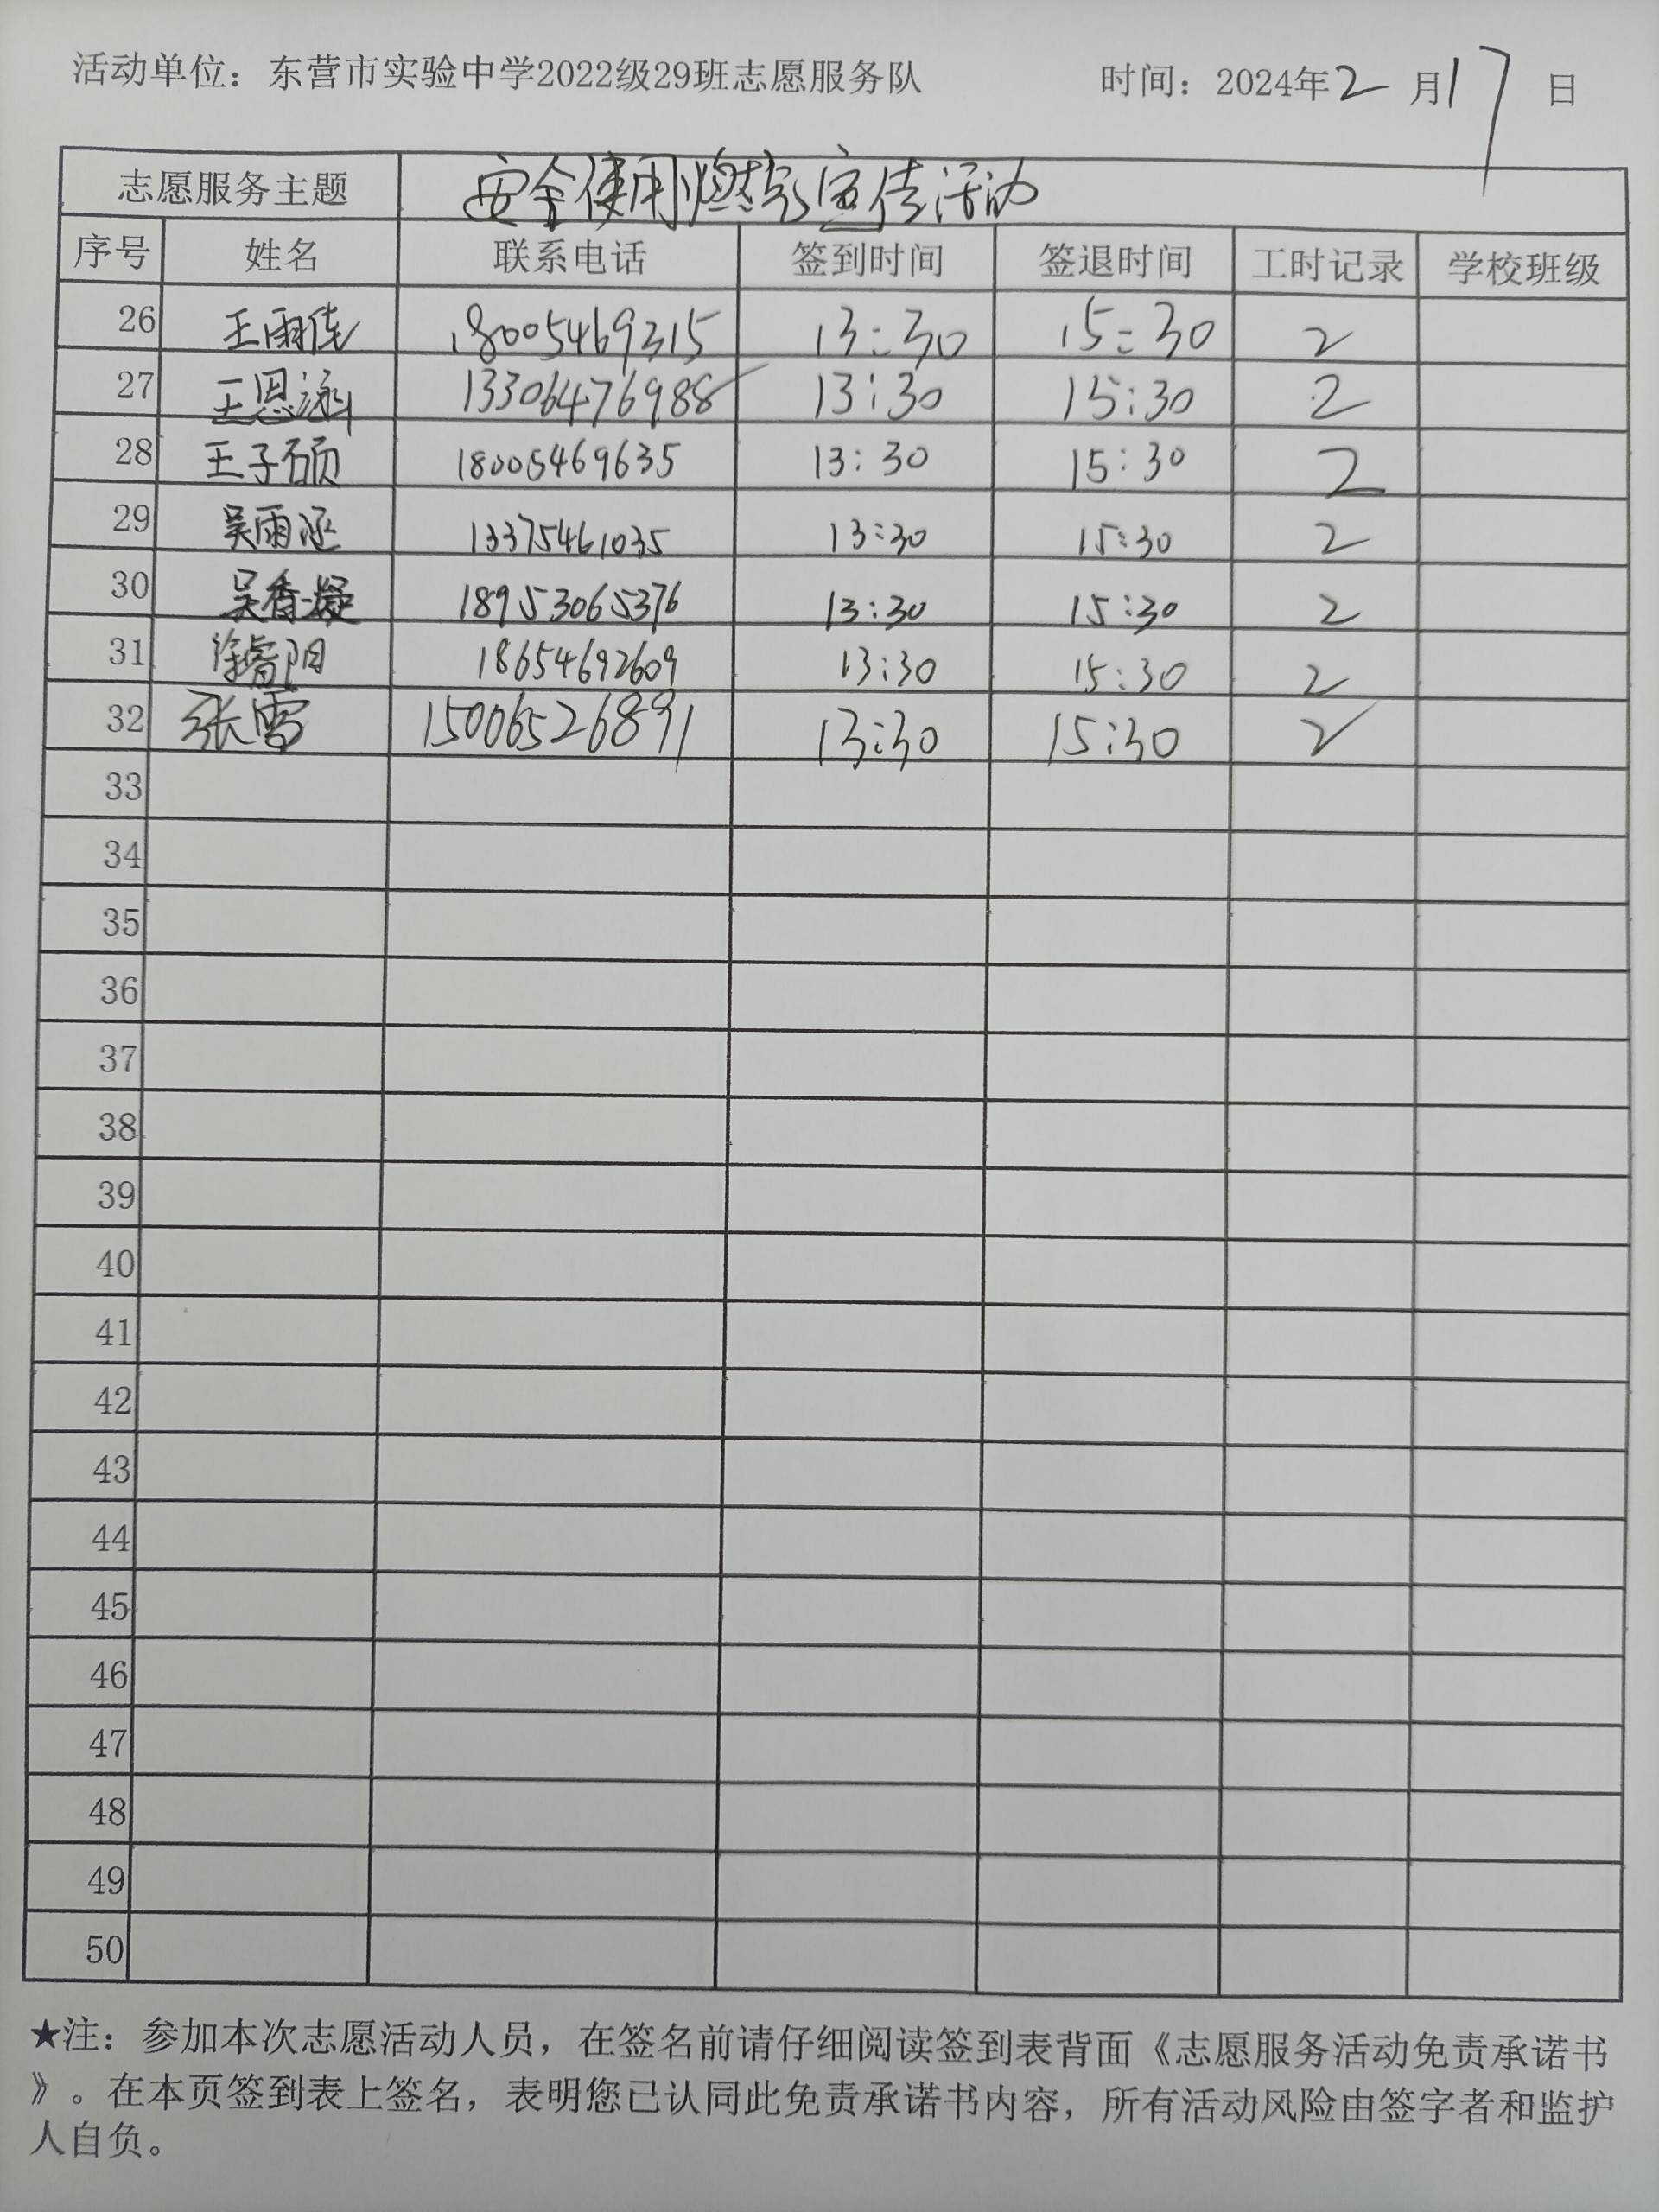 活动单位：东营市实验中学2022级29班志愿服务队 时间：2024年2月17日
志愿服务主题 安全使用燃气宣传活动
序号 姓名 联系电话 签到时间 签退时间 工时记录 学校班级
26 王雨佳 18005469315 13:30 15:30 2
27 王恩涵 13306476988 13:30 15:30 2
28 王子硕 18005469635 13:30 15:30 2
29 吴雨涵 13375461035 13:30 15:30 2
30 吴香凝 18953065376 13:30 15:30 2
31 徐睿阳 18654692609 13:30 15:30 2
32 张雪 15006526891 13:30 15:30 2
33
34
35
36
37
38
39
40
41
42
43
44
45
46
47
48
49
50
★注：参加本次志愿活动人员，在签名前请仔细阅读签到表背面《志愿服务活动免责承诺书
》。在本页签到表上签名，表明您已认同此免责承诺书内容，所有活动风险由签字者和监护
人自负。